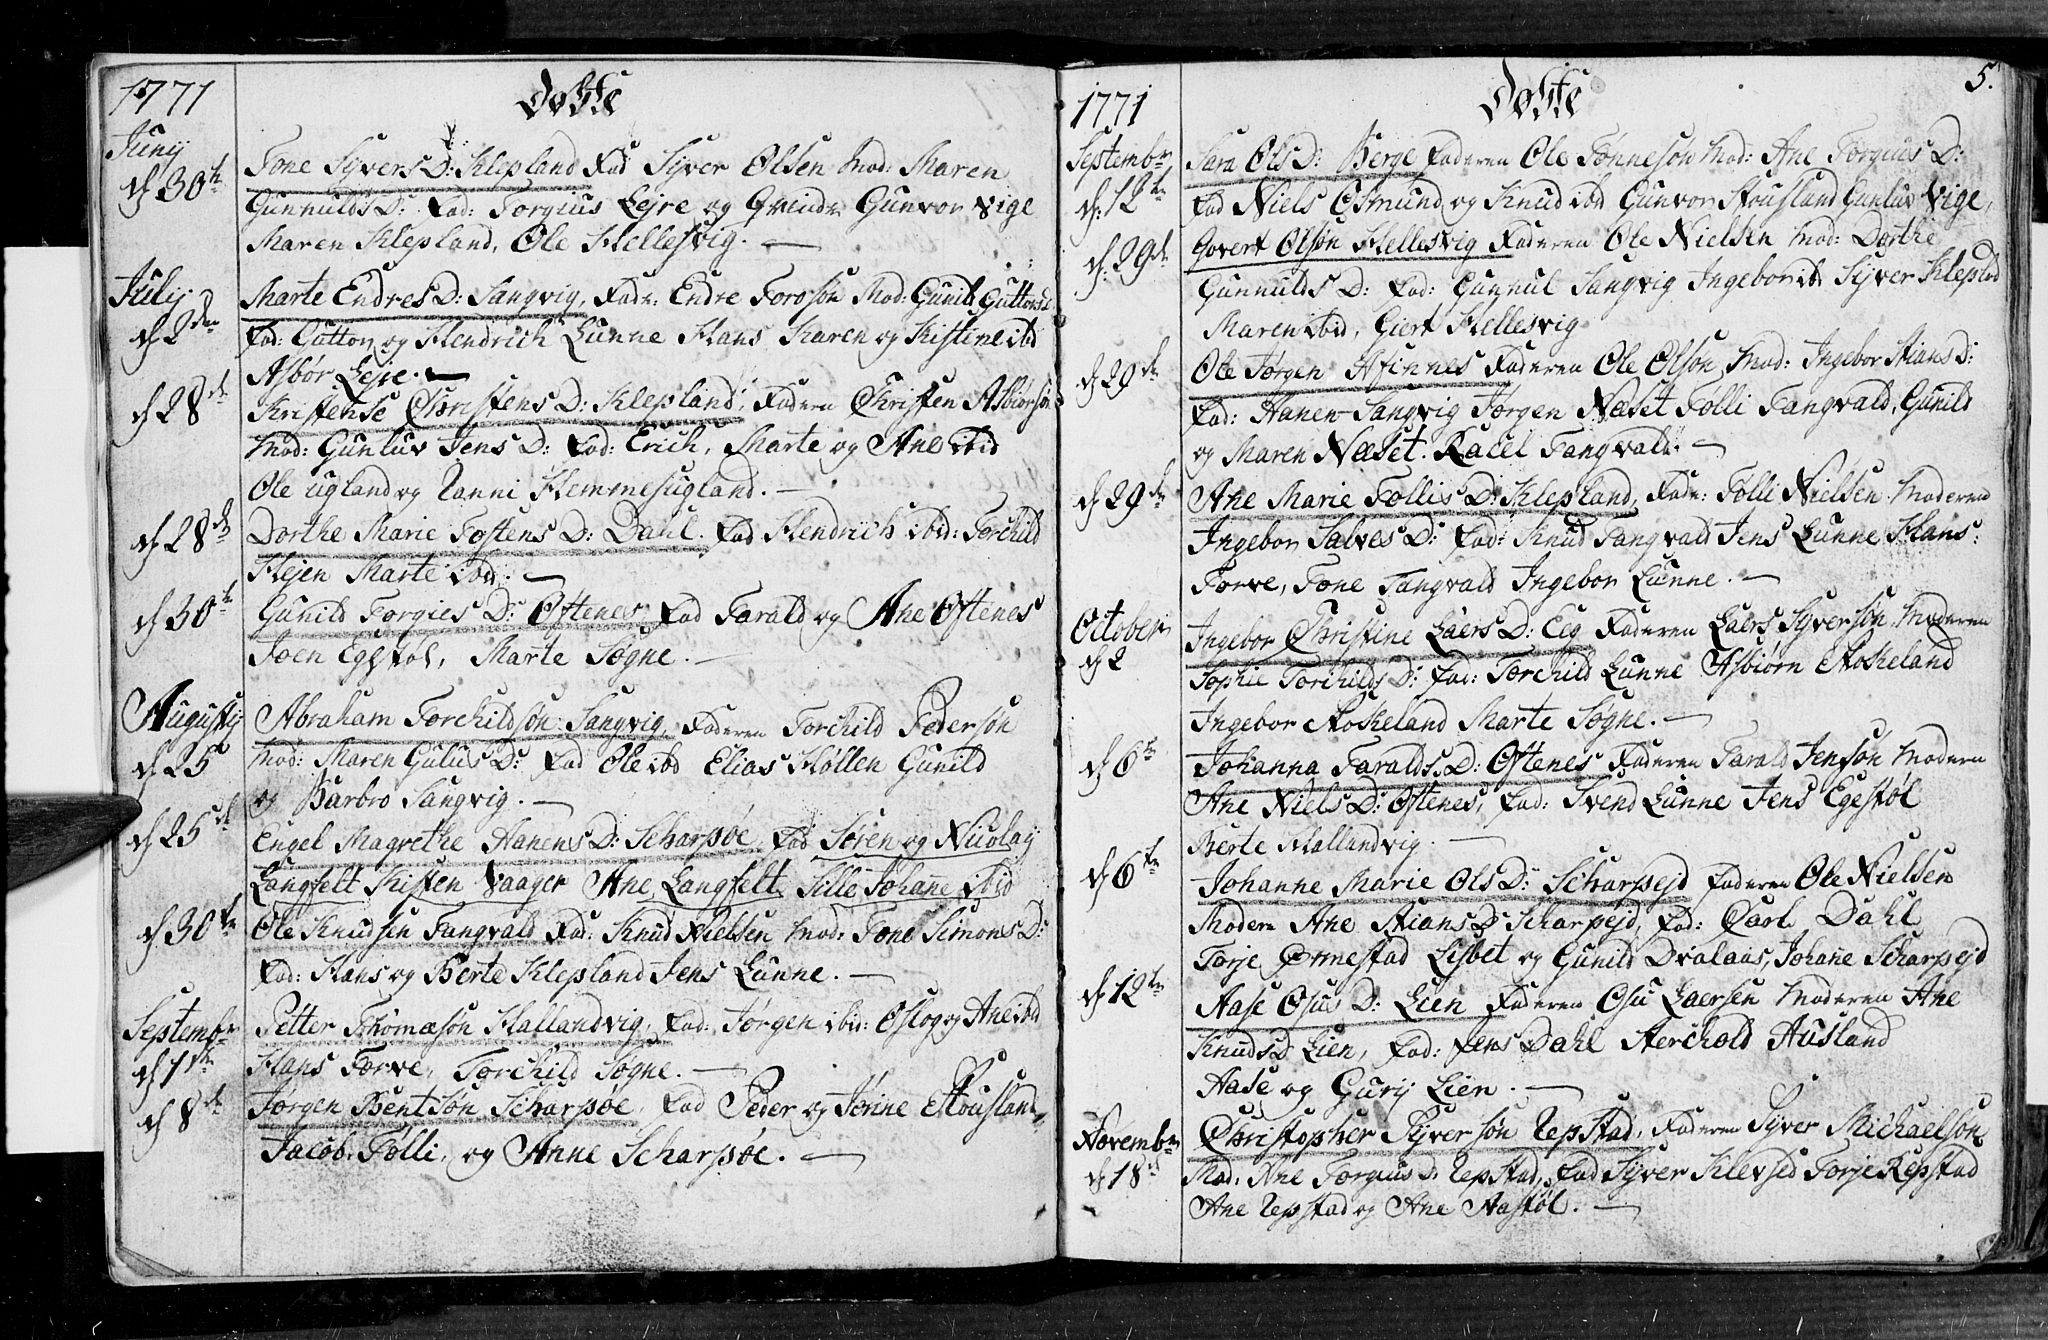 1771
Døbte
Junij
d 30te
Tone Syvers D: Klepland Fad Syver Olsen Mod: Maren
Gunnulds D: Fad: Torgius Lejre og Qvinde Gunvor Vige
Maren Klepland, Ole Hellesvig.
Julij
d 2den
Marte Endres D: Sangvig, Fadr: Endre Mod: Gunild Guttorms D
Fad: Guttorm og Hendrich Lunne Hans Karen og Kistine ibid
Asbør Lejre.
d 28de
Kristense Christens D: Klepland, Faderen Christen Asbiørsøn
Mod: Gunluv Jens D: Fad: Erich, Marte og Ane ibid
Ole Ugland og Hemmesugland.
d 28de
Dorthe Marie Tostens D: Dahl. Fad Hendrich ibid: Torchild
Hejen Marte ibd.
d 30te
Gunild Torgies D: Oftenes Fad Tarald og Ane Oftenes
Joen Egestøl, Marte Søgne.
Augustij
d 25
Abraham Torchildsøn Sangvig Faderen Torchild Pedersøn
Mod: Maren Gulus D: Fad Ole ibd Elias Høllen Gunild
og Barbro Sangvig.
d 25de
Engel Magrethe Hanens D: Scharpøe Fad Søren og Nicolaij
Langfelt Kisten Vaager Ane Langfelt Sille Johane ibid
d 30te
Ole Knudsen Tangvald Fad: Knud Nielsen Mod: Tone Simons D:
Fad: Hans og Berte Klepland Jens Lunne.
Septembr
d 1ste
Petter Thomæsøn Hallandvig, Fad: Jørgen ibid: Oslog og Ane ibid
Hans Torve, Torchild Søgne.
d 8de
Jørgen Bentsøn Scharpøe, Fad Peder og Jørine Stousland
Jacob, Følli, og Anne Scharpøe.
5.
1771
Døbte
Septembr
d: 12te
Sara Ols D: Berge Faderen Ole Tønnesøn Mod: Ane Torgius D:
Fad Niels Osmund og Knud ibd Gunvor Stousland Gunluv Vige,
d: 29de
Govert Olsøn Hellesvig Faderen Ole Nielsen Mod: Dorthe
Gunnulds D: Fad: Gunnul Sangvig Ingebor ibd Syver Klepland
Maren ibid, Giert Hellesvig
d 29de
Ole Jørgen Faderen Ole Olsøn, Mod: Ingebor Stians D:
Fad: Hanen Sangvig Jørgen Næset Følli Tangvald, Gunild
og Maren Næset. Racel Tangvald.
d 29de
Ane Marie Føllis D: Klepland, Fadr: Følli Nielsen Moderen
Ingebor Salves D: Fad: Knud Tangvald Jens Lunne Hans
Torve, Tone Tangvald Ingebor Lunne.
October
d 2
Ingebor Christine Laers D: Eeg Faderen Laers Syversøn, Moderen
Sophie Torchilds D: Fad: Torchild Lunne Asbiørn Stokeland
Ingebor Stokeland Marte Søgne.
d 6te
Johanna Taralds D: Oftenes Faderen Tarald Jensøn Modern
Ane Niels D: Oftenes, Fad: Svend Lunne Jens Egestøl
Berte Hallandvig.
d 6te
Johanne Marie Ols D: Scharpejd Faderen Ole Nielsen
Modern Ane Stians D Scharpejd, Fad: Carl Dahl
Torje Ormestad Lisbet og Gunild Dralaas, Johane Scharpejd
d 12te
Aase Osus D: Lien Faderen Osu Laersen Moderen Ane
Knuds D Lien, Fad: Jens Dahl Aerchold Ausland
Aase og Gurij Lien.
Novembr
d 18de
Christopher Syversøn Repstad, Faderen Syver Michaelsøn
Mod: Ane Torgius D: Repstad, Fad Syver Klevsed Torje Repstad
Ane Repstad og Ane Aastøl.